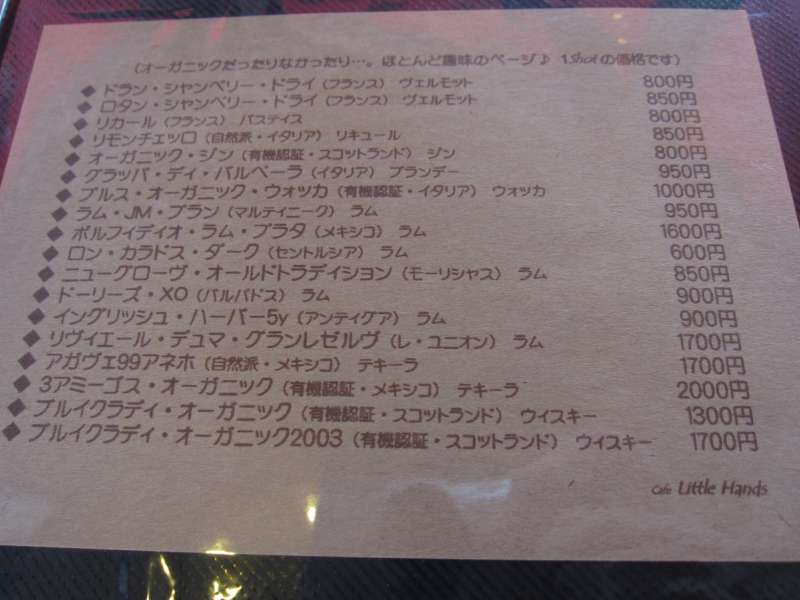 (オーガニックだったりなかったり…。ほとんど趣味のページ♪ 1Shotの価格です)
◆ ドラン・シャンベリー・ドライ (フランス) ヴェルモット 800円
◆ ロタン・シャンベリー・ドライ (フランス) ヴェルモット 850円
◆ リカール (フランス) パスティス 800円
◆ リモンチェッロ (自然派・イタリア) リキュール 850円
◆ オーガニック・ジン (有機認証・スコットランド) ジン 800円
◆ グラッパ・ディ・バルベーラ (イタリア) ブランデー 950円
◆ プルス・オーガニック・ウォッカ (有機認証・イタリア) ウォッカ 1000円
◆ ラム・JM・ブラン (マルティニーク) ラム 950円
◆ ポルフィディオ・ラム・プラタ (メキシコ) ラム 1600円
◆ ロン・カラドス・ダーク (セントルシア) ラム 600円
◆ ニューグローヴ・オールドトラディション (モーリシャス) ラム 850円
◆ ドーリーズ・XO (バルバドス) ラム 900円
◆ イングリッシュ・ハーバー5y (アンティグア) ラム 900円
◆ リヴィエール・デュマ・グランレゼルヴ (レ・ユニオン) ラム 1700円
◆ アガヴェ99アネホ (自然派・メキシコ) テキーラ 1700円
◆ 3アミーゴス・オーガニック (有機認証・メキシコ) テキーラ 2000円
◆ ブルイクラディ・オーガニック (有機認証・スコットランド) ウイスキー 1300円
◆ ブルイクラディ・オーガニック2003 (有機認証・スコットランド) ウイスキー 1700円
Cafe Little Hands